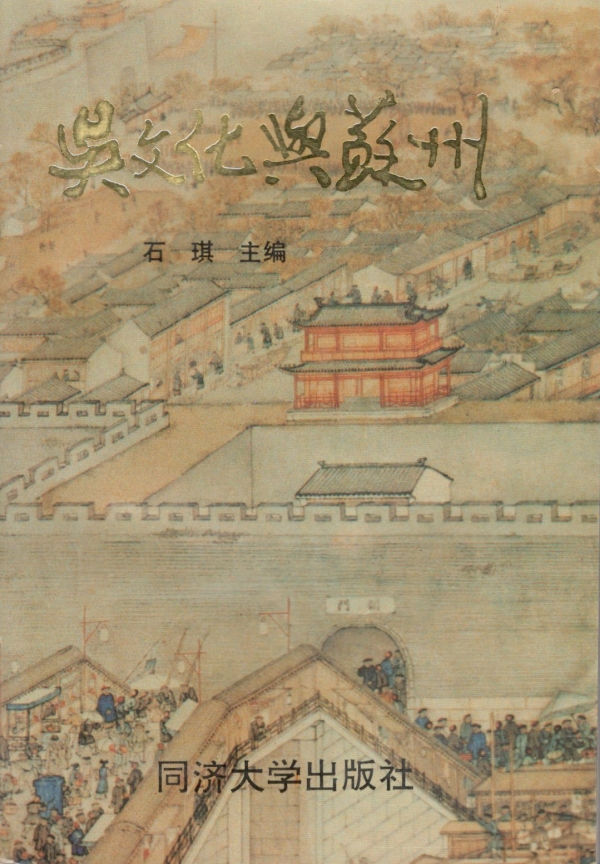 吳文化與蘇州
石 琪 主编
門閶
同济大学出版社